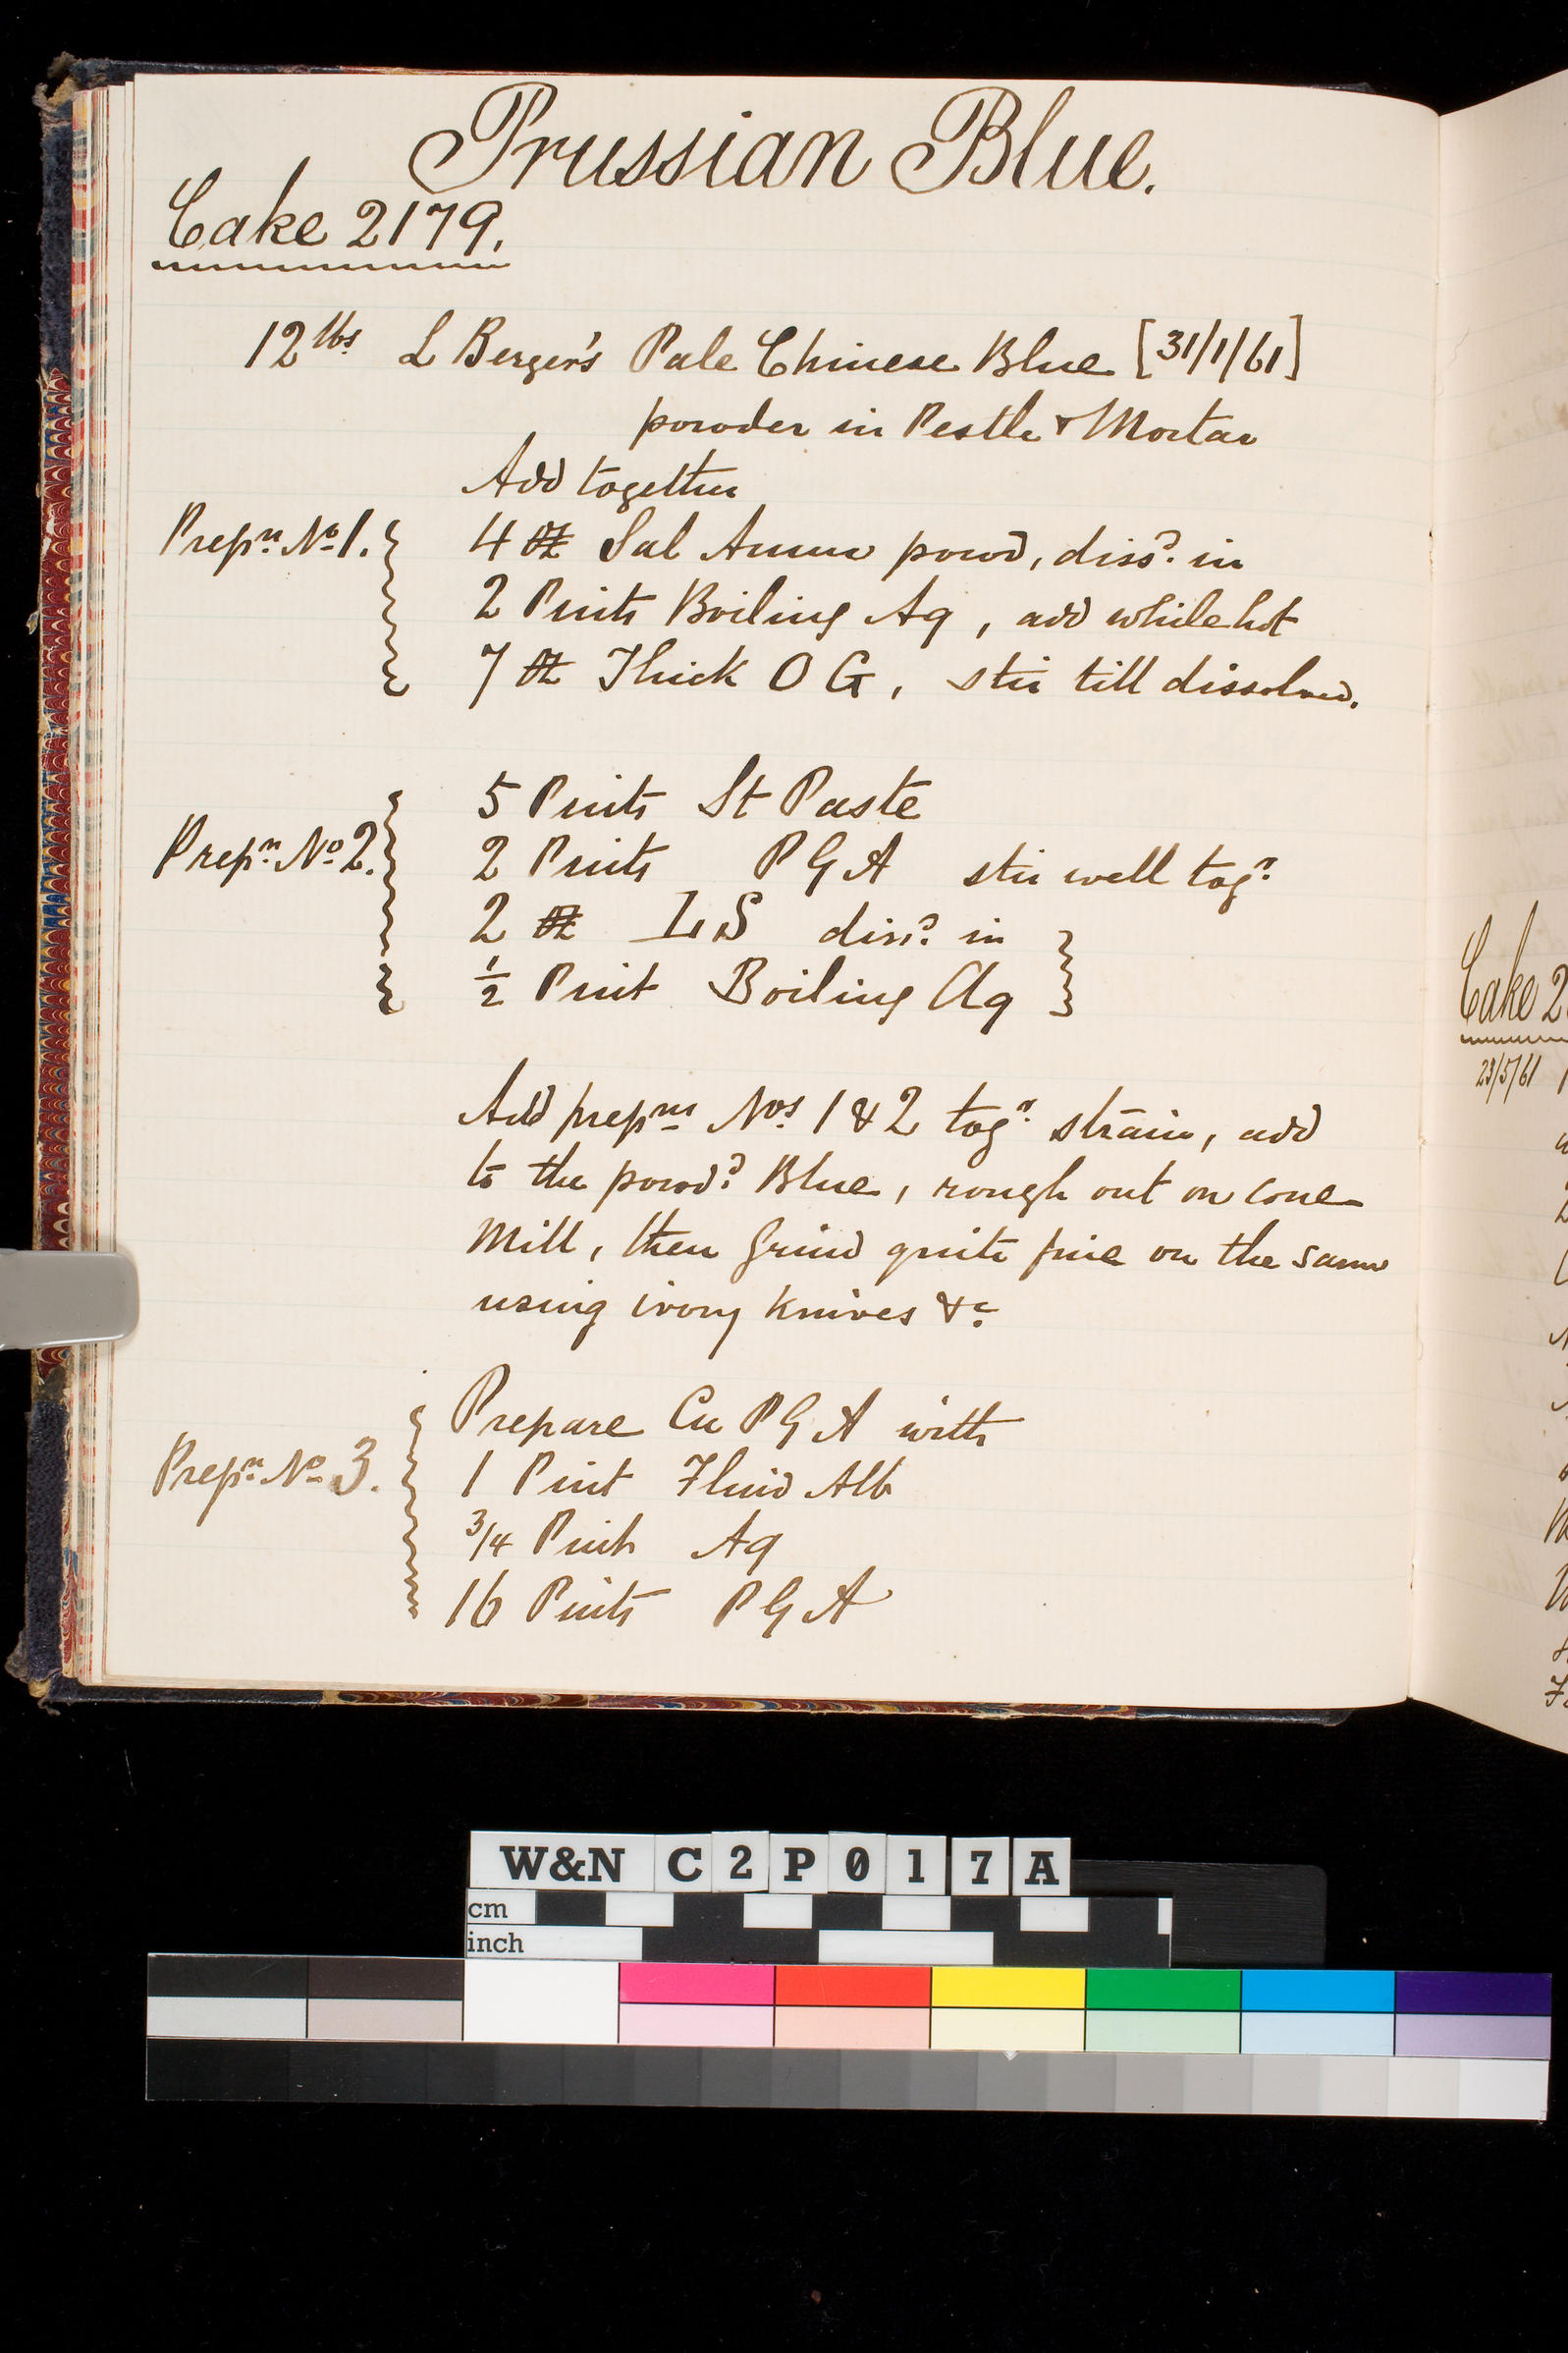 Prussian Blue.
Cake 2179.
12 lbs L Berger's Pale Chinese Blue [31/1/61]
powder in Pestle & Mortar
Add together
Prepn No 1. 4 oz Sal Ammo powd, dissd. in
2 Pints Boiling Aq, add while hot
7 oz Thick O G, stir till dissolved.
5 Pints St Paste
Prepn No 2. 2 Pints P G A stir well togr
2 oz L S dissd. in
1/2 Pint Boiling Aq
Add prepns Nos 1 & 2 togr strain, add
to the powd. Blue, rough out on Cone
Mill, then Grind quite fine on the same
using ivory knives &c
Prepare Cu P G A with
Prepn No 3. 1 Pint Fluid Alb
3/4 Pint Aq
16 Pints P G A
Cake 2
23/5/61
W&N C2P017A
cm
inch